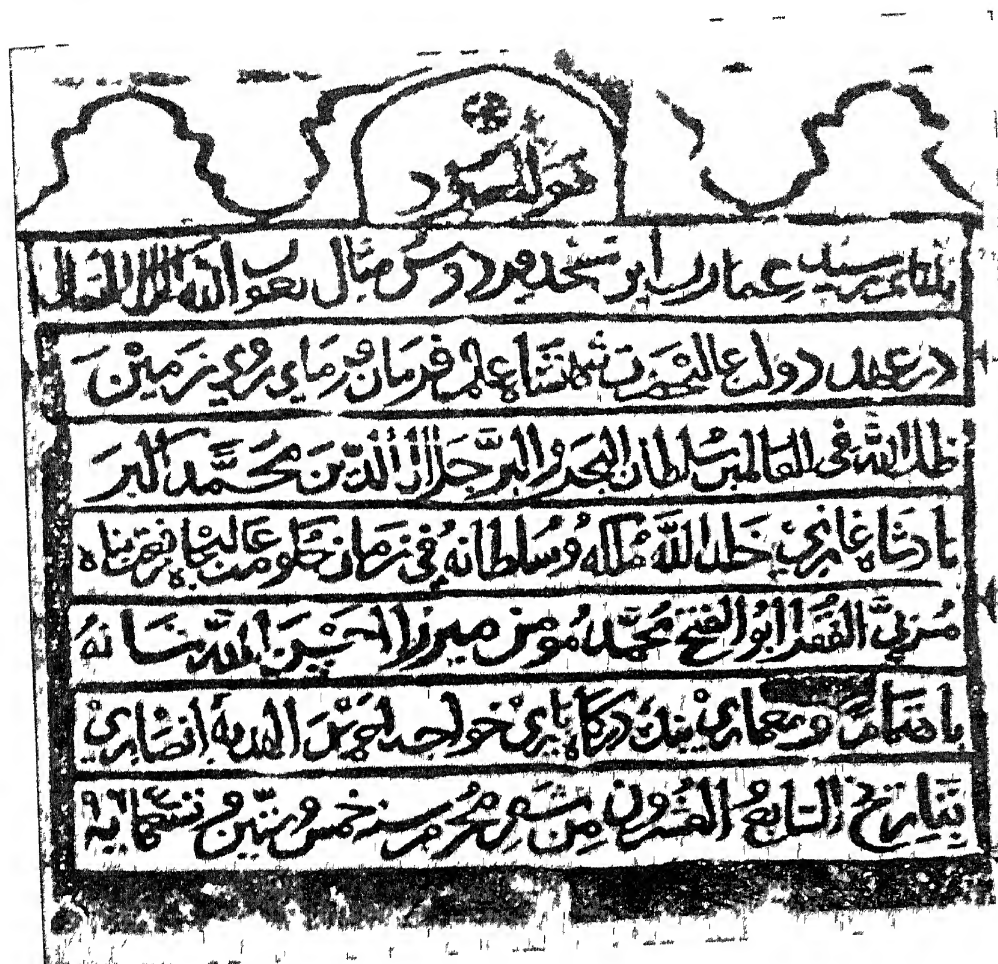 هو المعبود
باتمام رسید عمارت این مسجد فردوس مثال بعون الله الملک المتعال
در عهد دولت عالیحضرت شهنشاه عالم فرمان فرمای روی زمین
ظل الله فی العالمین سلطان البحر و البر جلال الدین محمد اکبر
بادشاه غازی خلد الله ملکه و سلطانه فی زمان حکومت عالیجاه
مربی الفقرا ابو الفتح محمد مومن میرزا الله
باهتمام و معماری بنده درگاه باری خواجه انصاری
بتاریخ السابع و العشرون من شهر محرم سنه خمس و ستین و تسعمایة ۹۶۵